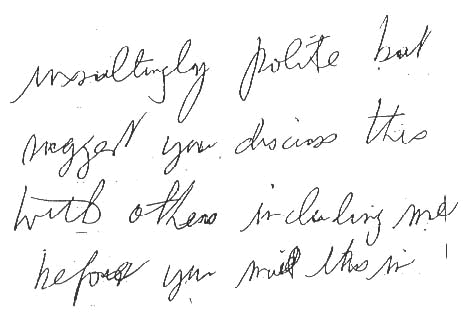 insultingly polite but
suggest you discuss this
with others including me
before you this in !